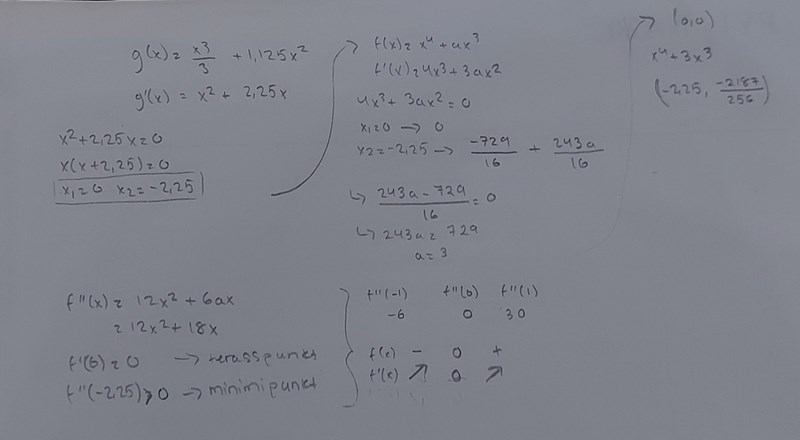 g(x) = x³/3 + 1,125x²
g'(x) = x² + 2,25x
x² + 2,25x = 0
x(x + 2,25) = 0
x₁ = 0 x₂ = -2,25
→ f(x) = x⁴ + ax³
f'(x) = 4x³ + 3ax²
4x³ + 3ax² = 0
x₁ = 0 → 0
x₂ = -2,25 → -729/16 + 243a/16
↳ 243a - 729/16 = 0
↳ 243a = 729
a = 3
→ (0,0)
x⁴ + 3x³
(-2,25, -2187/256)
f''(x) = 12x² + 6ax
= 12x² + 18x
f'(0) = 0 → terasspunkt
f''(-2,25) > 0 → minimipunkt
f''(-1) f''(0) f''(1)
-6 0 30
f(x) - 0 +
f'(x) ↗ 0 ↗